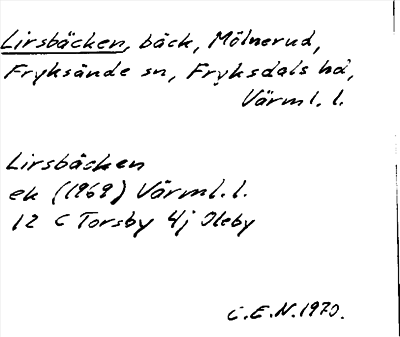 Lirsbäcken, bäck, Mölnerud,
Fryksände sn, Fryksdals hd,
Värml. l.
Lirsbäcken
ek (1969) Värml. l.
12 C Torsby 4j Oleby
C.E.N. 1970.